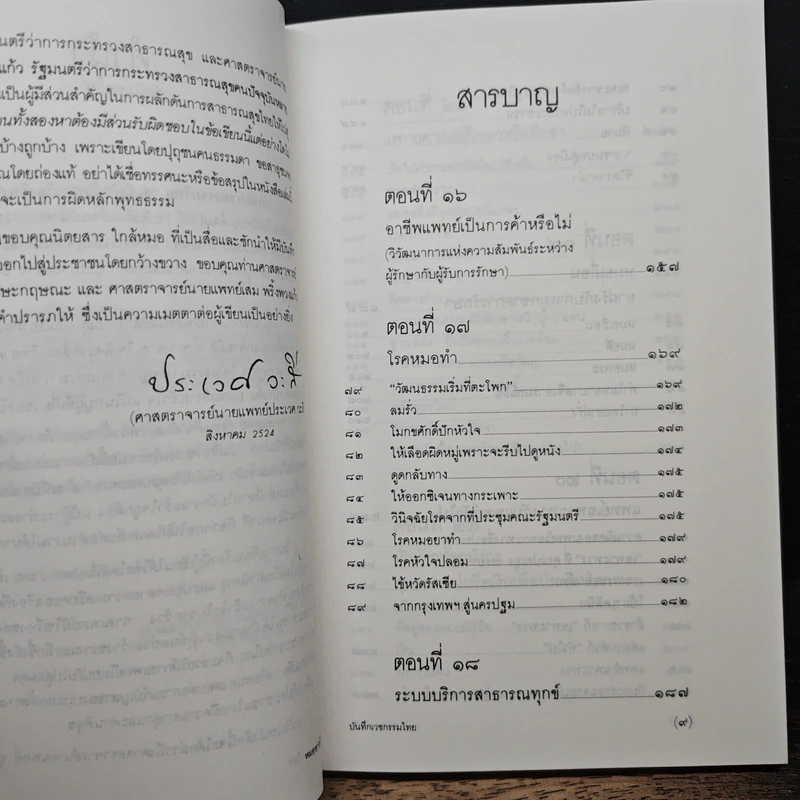 นตรีว่าการกระทรวงสาธารณสุข และศาสตราจารย์นาย
แก้ว รัฐมนตรีว่าการกระทรวงสาธารณสุขคนปัจจุบัน
เป็นผู้มีส่วนสำคัญในการผลักดันการสาธารณสุขไทยให้
วนทั้งสองหาต้องมีส่วนรับผิดชอบในข้อเขียนนี้แต่อย่างใด
บ้างถูกบ้าง เพราะเขียนโดยปุถุชนคนธรรมดา
ณโดยถ่องแท้ อย่าได้เชื่อทรรศนะหรือข้อสรุปในหนังสือเล่มนี้
จะเป็นการผิดหลักพุทธธรรม
ขอบคุณนิตยสาร ใกล้หมอ ที่เป็นสื่อและชักนำให้มีบันทึก
ออกไปสู่ประชาชนโดยกว้างขวาง ขอบคุณท่านศาสตราจารย์
ษะกฤษณะ และ ศาสตราจารย์นายแพทย์เสม พริ้งพวงแก้ว
คำปรารภให้ ซึ่งเป็นความเมตตาต่อผู้เขียนเป็นอย่างยิ่ง
ประเวศ วะสี
(ศาสตราจารย์นายแพทย์ประเวศ วะสี
สิงหาคม 2524
สารบาญ
ตอนที่ ๑๖
อาชีพแพทย์เป็นการค้าหรือไม่
(วิวัฒนาการแห่งความสัมพันธ์ระหว่าง
ผู้รักษากับผู้รับการรักษา) ๑๕๗
ตอนที่ ๑๗
โรคหมอทำ ๑๖๙
๗๙ "วัฒนธรรมเริ่มที่ตะโพก" ๑๖๙
๘๐ ลมรั่ว ๑๗๒
๘๑ โมกขศักดิ์ปักหัวใจ ๑๗๓
๘๒ ให้เลือดผิดหมู่เพราะจะรีบไปดูหนัง ๑๗๔
๘๓ ดูดกลับทาง ๑๗๕
๘๔ ให้ออกซิเจนทางกระเพาะ ๑๗๕
๘๕ วินิจฉัยโรคจากที่ประชุมคณะรัฐมนตรี ๑๗๕
๘๖ โรคหมอยาทำ ๑๗๙
๘๗ โรคหัวใจปลอม ๑๗๙
๘๘ ไข้หวัดรัสเซีย ๑๘๐
๘๙ จากกรุงเทพฯ สู่นครปฐม ๑๘๒
ตอนที่ ๑๘
ระบบบริการสาธารณทุกข์ ๑๘๗
บันทึกเวชกรรมไทย (๙)